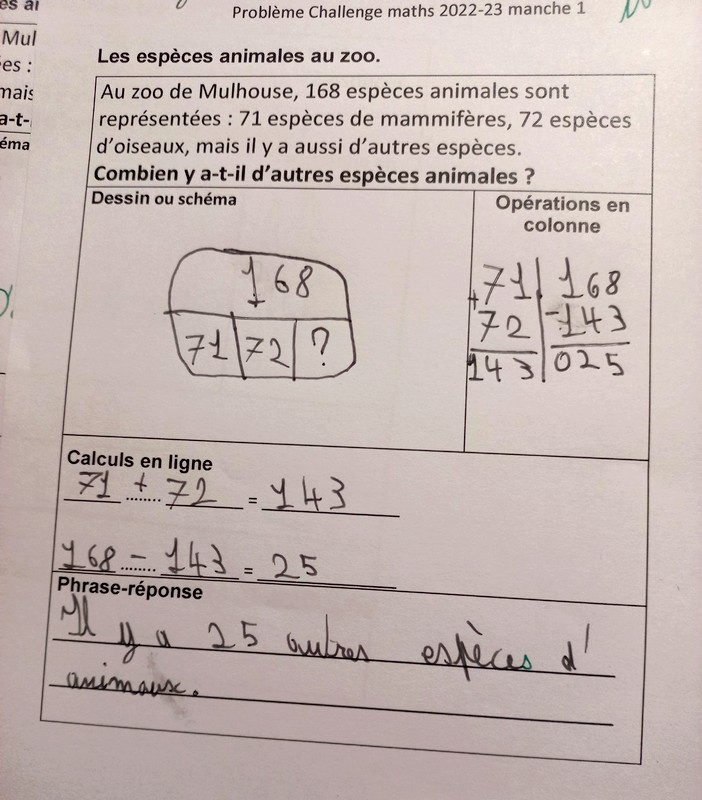 es ai
Mul
es :
mais
a-t-
éma
Problème Challenge maths 2022-23 manche 1
Les espèces animales au zoo.
Au zoo de Mulhouse, 168 espèces animales sont
représentées : 71 espèces de mammifères, 72 espèces
d'oiseaux, mais il y a aussi d'autres espèces.
Combien y a-t-il d'autres espèces animales ?
Dessin ou schéma
168
71 72 ?
Opérations en
colonne
71 168
+72 -143
143 025
Calculs en ligne
71 + 72 = 143
168 - 143 = 25
Phrase-réponse
Il y a 25 autres espèces d'
animaux.